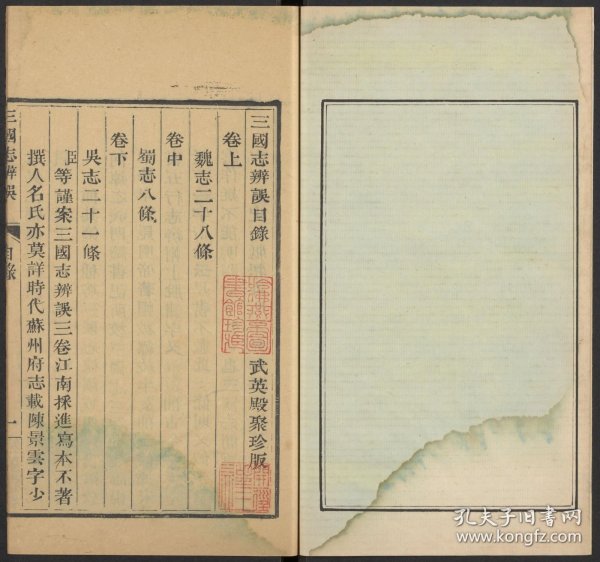 三國志辨誤目錄
武英殿聚珍版
卷上
魏志二十八條
卷中
蜀志八條
卷下
吳志二十一條
臣等謹案三國志辨誤三卷江南採進寫本不著
撰人名氏亦莫詳時代蘇州府志載陳景雲字少
三國志辨誤
目錄
一
孔夫子旧书网
www.kongfz.com